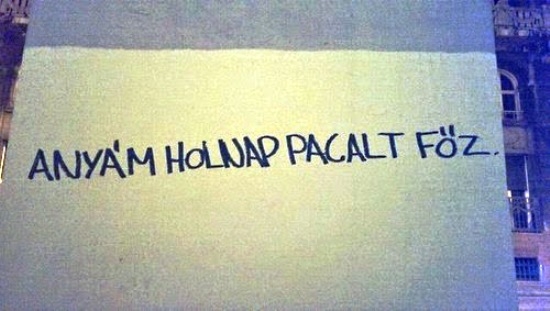 ANYÁM HOLNAP PACALT FŐZ.